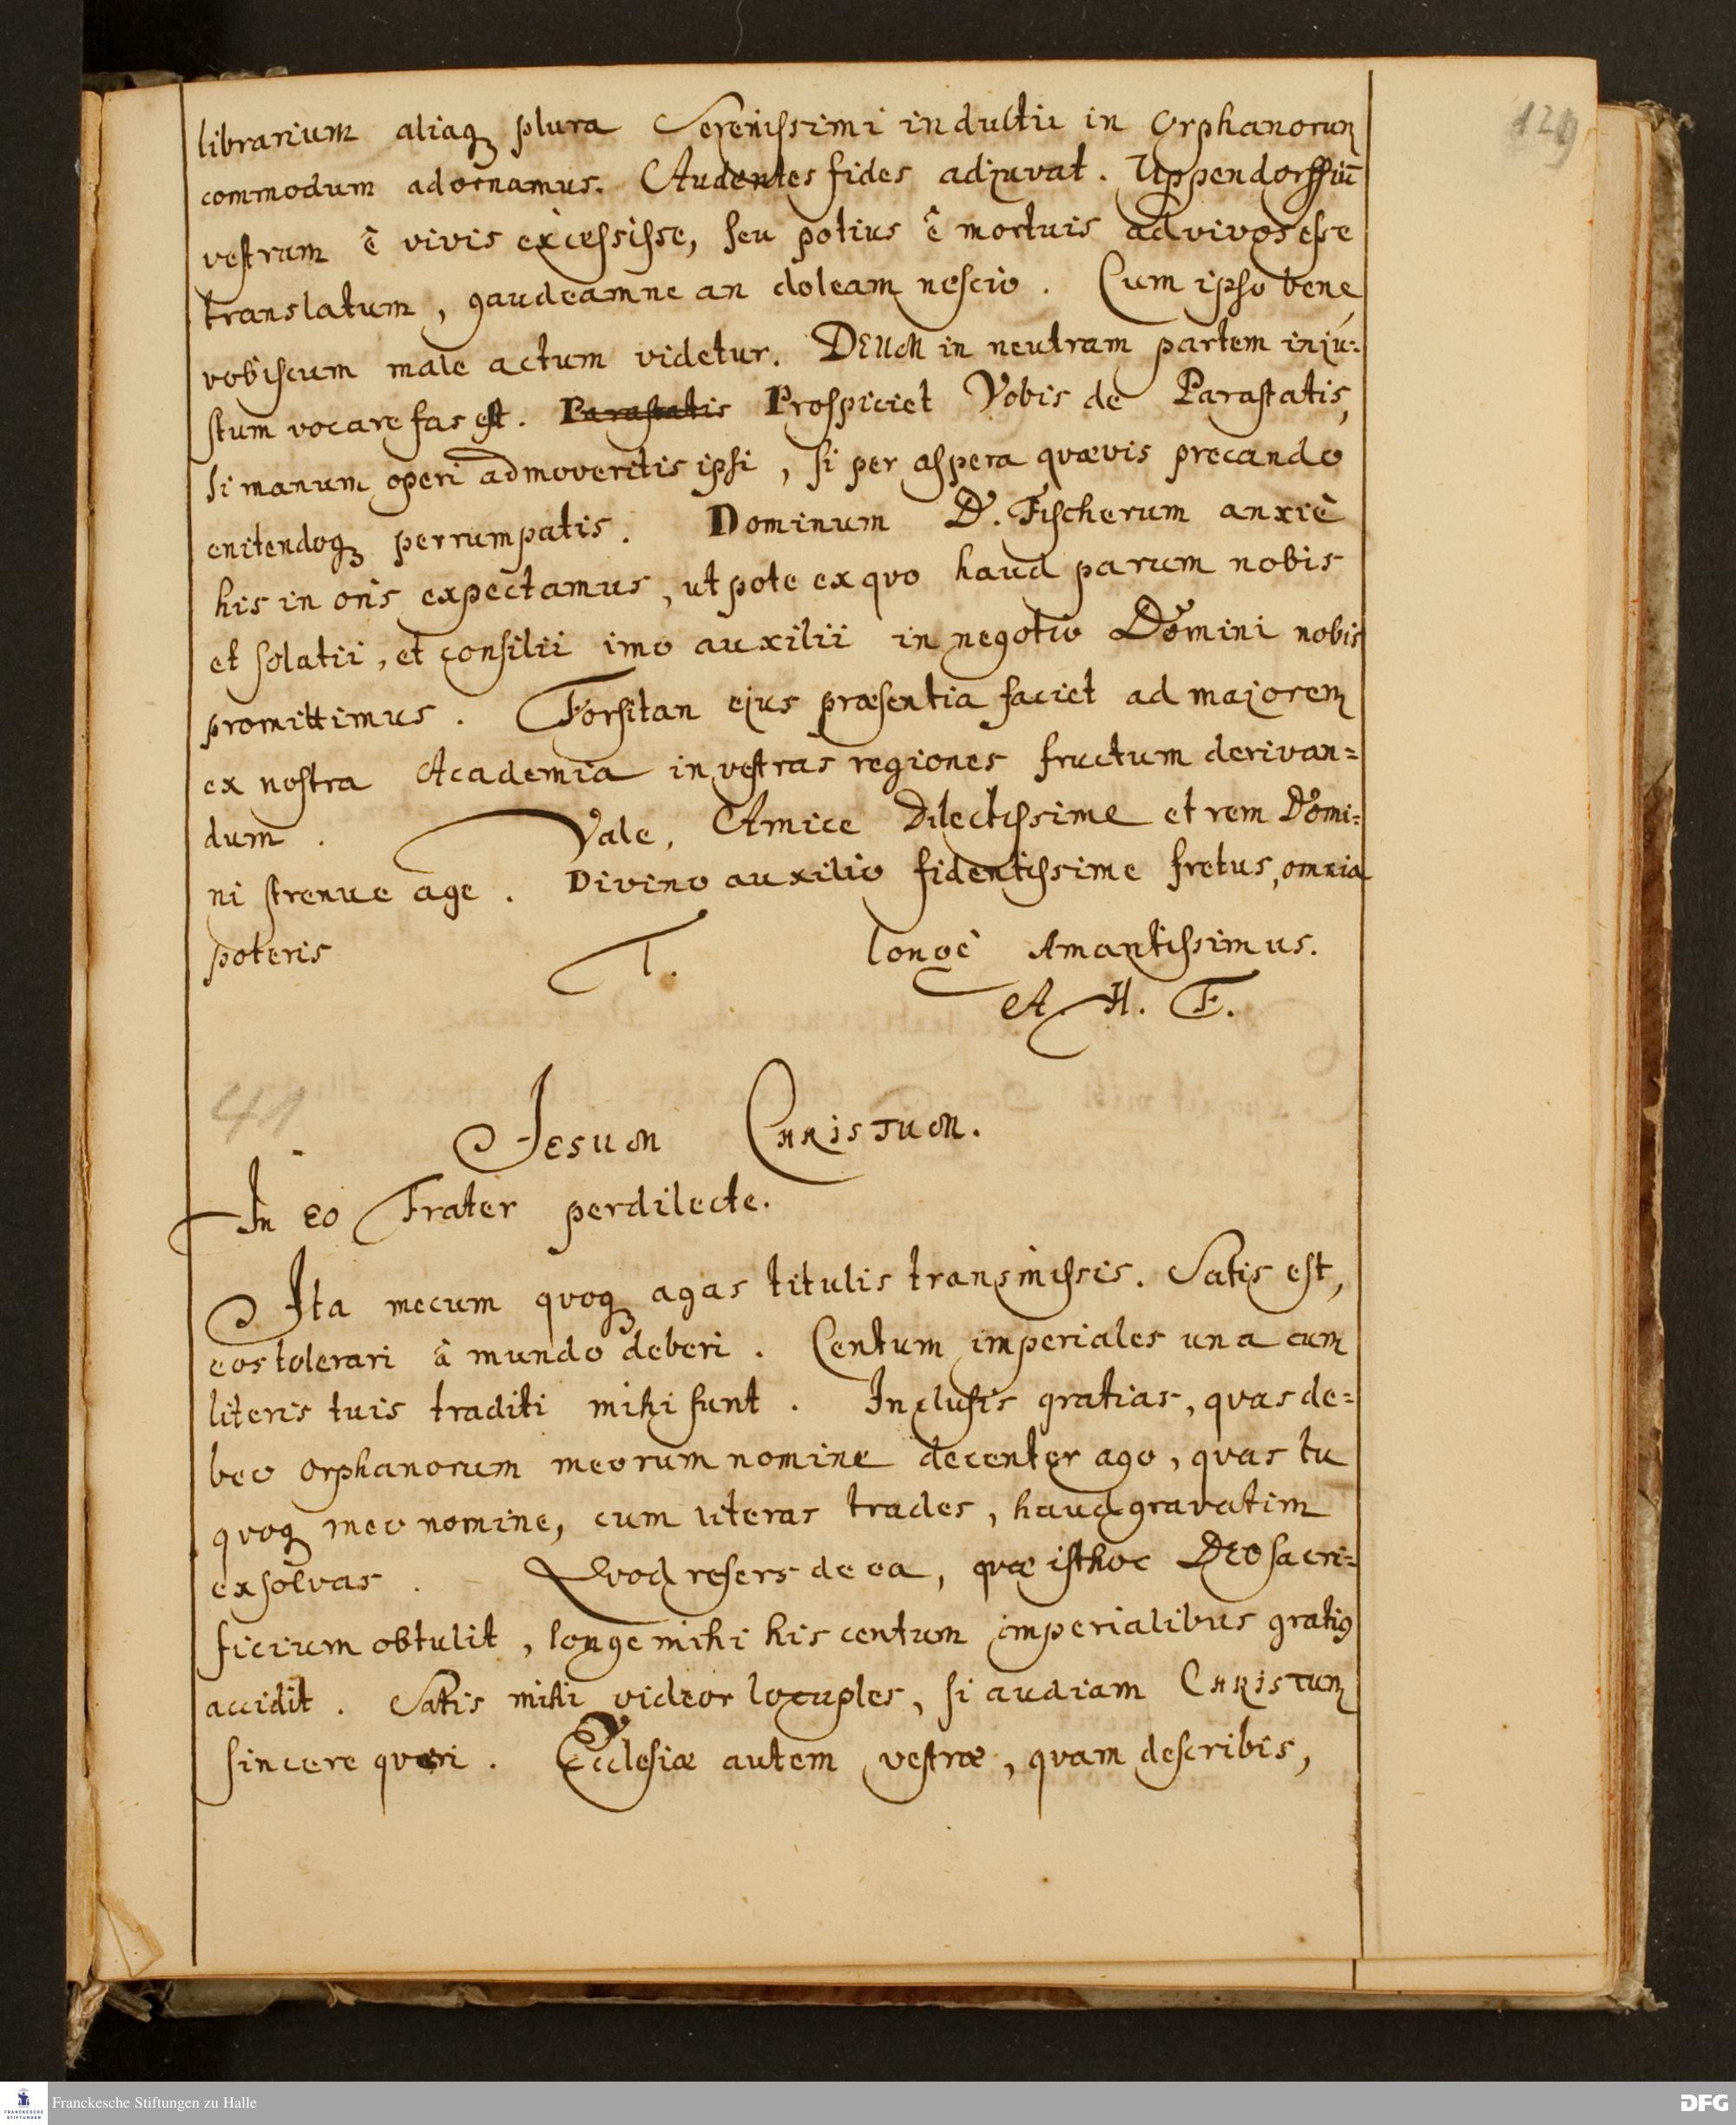 129
librarium aliaq; plura Serenissimi indultu in Orphanorum
commodum adornamus. Audentes fides adjuvat. Uppendorffiū
vestrum ê vivis excessisse, seu potius ê mortuis ad vivos esse
translatum, gaudeamne an doleam nescio. Cum ipso bene,
vobiscum male actum videtur. DEUM in neutram partem inju=
stum vocare fas est. Parastatis Prospiciet Vobis de Parastatis,
si manum operi admoveritis ipsi, si per aspera quævis precando
enitendoq; perrumpatis. Dominum D. Fischerum anxiè
his in oris expectamus, ut pote ex quo haud parum nobis
et solatii, et consilii imo auxilii in negotio Domini nobis
promittimus. Forsitan ejus præsentia faciet ad majorem
ex nostra Academia in vestras regiones fructum derivan=
dum. Vale, Amice Dilectissime et rem Domi=
ni strenue age. Divino auxilio fidentissime fretus, omnia
poteris T. longè Amantissimus.
A. H. F.
41
JESUM CHRISTUM.
In eo Frater perdilecte.
Ita mecum quoq; agas titulis transmissis. Satis est,
eos tolerari â mundo deberi. Centum imperiales una cum
literis tuis traditi mihi sunt. Inclusis gratias, quas de=
beo orphanorum meorum nomine decenter ago, quas tu
quoq; meo nomine, cum literas trades, haud gravatim
exsolvas. Quod refers de ea, quæ isthoc DEO sacri=
ficium obtulit, longe mihi his centum imperialibus gratius
accidit. Satis mihi videor locuples, si audiam CHRISTUM
sincere quæri. Ecclesiæ autem vestræ, quam describis,
Franckesche Stiftungen zu Halle
FRANCKESCHE STIFTUNGEN
DFG